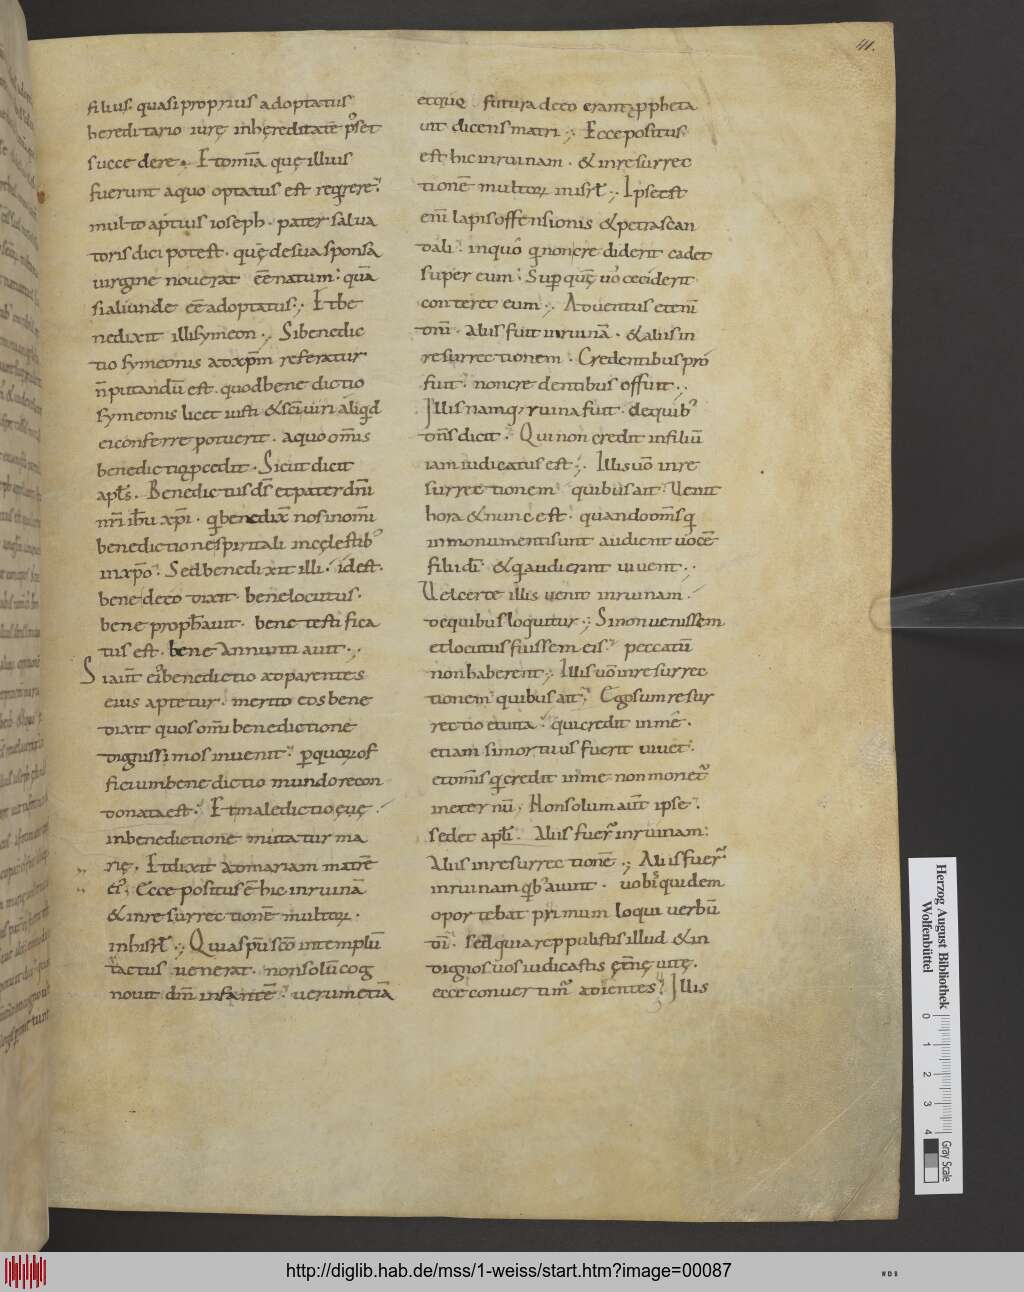 41.
filius. quasi proprius adoptatus
hereditario iurę inhęreditatē p̄set
succedere. Etom̄a quę illius
fuerunt aquo optatus est reqrere
multo aptius ioseph. pater salua
toris dici potest. quę̄ desua sponsa
uirgine nouerat eē natum: quā
si aliunde eē adoptatus; Et be
nedixit illi symeon; Si benedic
tio symeonis ad xp̄m referatur
n̄ putandū est. quod benedictio
symeonis licet iusti & sc̄i uiri aliqd
ei conferre potuerit. aquo om̄is
benedictio pcedit. Sicut dicit
apls̄. Benedictus ds̄ et pater dn̄i
nr̄i ih̄u xp̄i. q benedix̄ nos in om̄i
benedictione spiritali in cęlestib
in xp̄o. Sed benedixit illi. id est.
bene deco dixit. bene locutus.
bene prophauit. bene testifica
tus est. bene Annuntiauit;
Si aūt ei benedictio ad parentes
eius aptetur. merito eos bene
dixit quos om̄i benedictione
dignissimos inuenit. p quoꝝ of
ficium benedictio mundo recon
donata est. Et maledictio ęuę
in benedictionē mutatur ma
rię. Et dixit ad mariam matrē
ei. Ecce positus ē hic in ruinā
& in resurrectionē multoꝝ.
in hisrl̄; Quia sp̄u sc̄o in templū
tactus uenerat. non solū cog
nouit dn̄m infantē. uerum etiā
et quę futura de eo erant, ppheta
uit dicens matri; Ecce positus
est hic in ruinam. & in resurrec
tionē multoꝝ in isrl̄; Ipse est
eni lapis offensionis & petra scan
dali. in quo q non crediderit cadet
super eum. Sup quē uo ceciderit
conteret eum; Aduentus etenī
dn̄i. aliis fuit in ruinā. & aliis in
resurrectionem. Credentibus pro
fuit. non credentibus offuit;
Illis namq, ruina fuit. de quib
dn̄s dicit. Qui non credit in filiū
iam iudicatus est; Illis uō in re
surrectionem quibus ait. Uenit
hora & nunc est. quando om̄s q
in monumentis sunt audient uocē
filii di. & q audierint uiuent;
Uel certe illis uenit in ruinam.
de quibus loquitur; Si non uenissem
et locutus fuissem eis. peccatū
non haberent; Illis uō in resurrec
tionem quibus ait. Ego sum resur
rectio et uita. qui credit in me.
etiam si mortuus fuerit uiuet.
et om̄is q credit in me non moriet
in eternū. Non solum aūt ipse.
sedet apli. Aliis fuer in ruinam:
Aliis in resurrectionē; Aliis fuer
in ruinam qb aiunt. uobis quidem
oportebat primum loqui uerbū
di. sed quia reppulistis illud & in
dignos uos iudicastis ęt̄nę uitę.
ecce conuertim ad gentes. Illis
Herzog August Bibliothek
Wolfenbüttel
0 1 2 3 4
Gray Scale
http://diglib.hab.de/mss/1-weiss/start.htm?image=00087